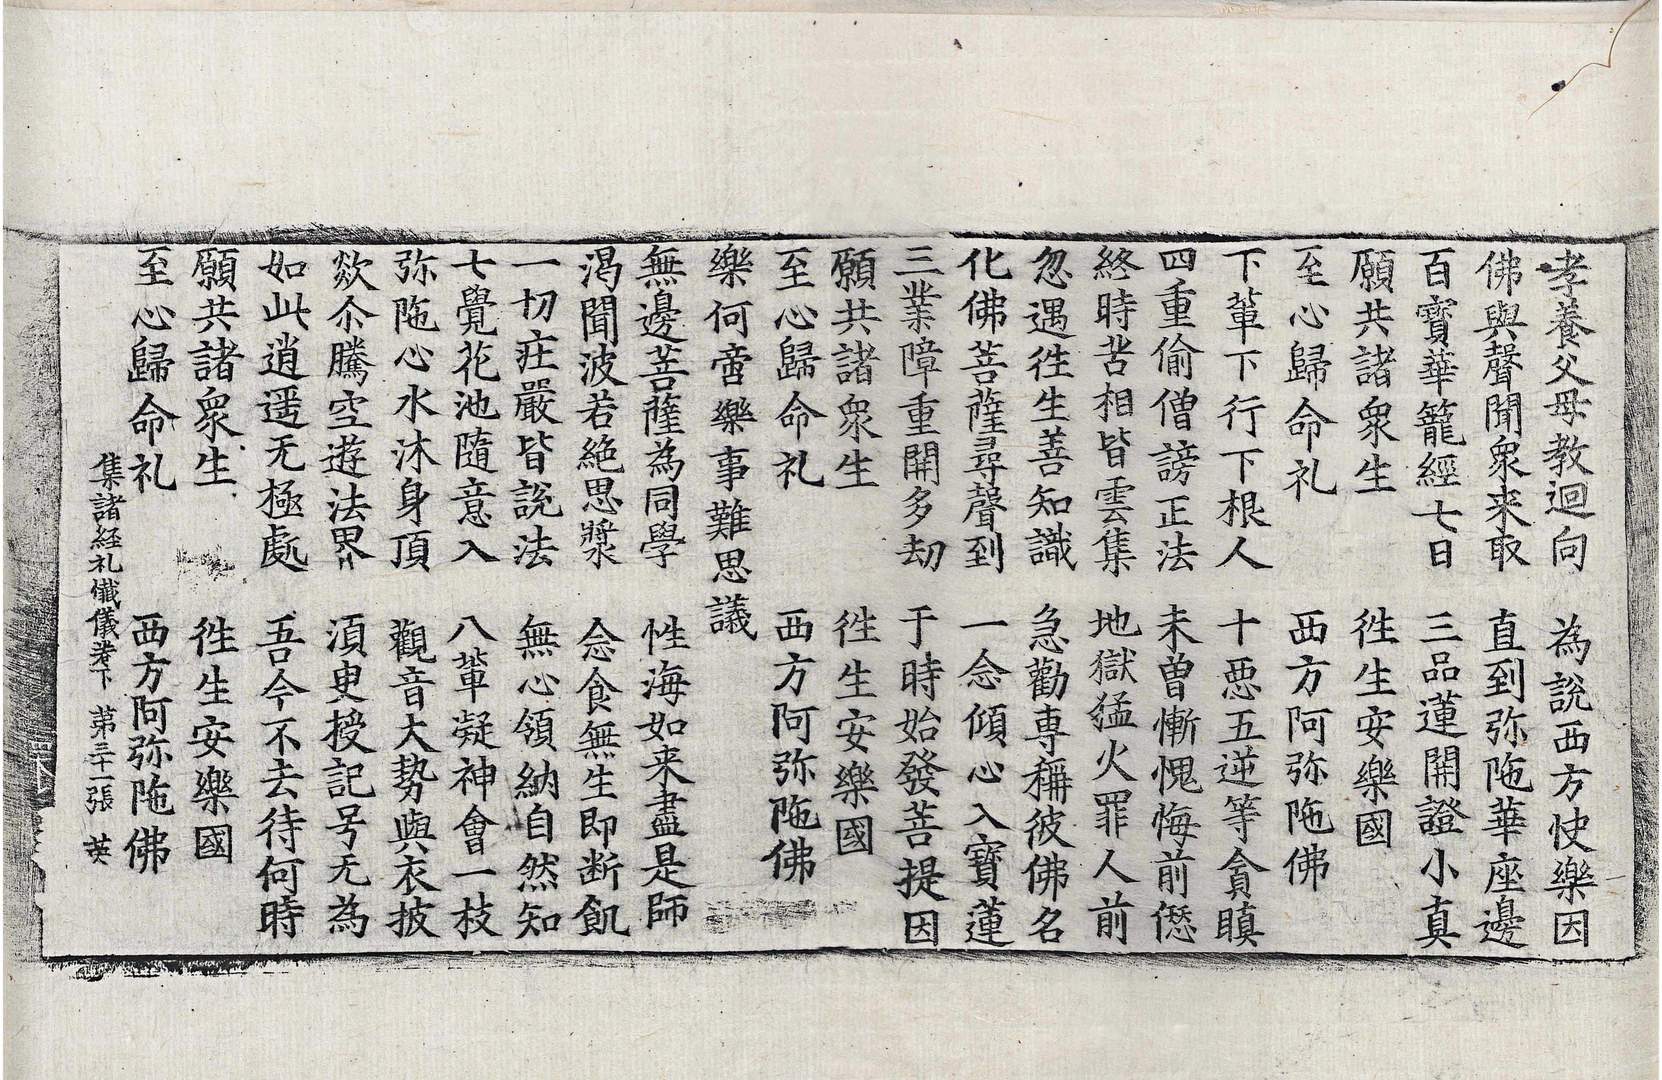 孝養父母教迴向　為說西方快樂因
佛與聲聞衆来取　直到弥陁華座邊
百寶華籠經七日　三品蓮開證小真
願共諸衆生　徃生安樂國
至心歸命礼　西方阿弥陁佛
下軰下行下根人　十悪五逆等貪瞋
四重偷僧謗正法　未曽慚愧悔前𠎝
終時苦相皆雲集　地獄猛火罪人前
忽遇徃生善知識　急勸専稱彼佛名
化佛菩薩尋聲到　一念傾心入寶蓮
三業障重開多劫　于時始發菩提因
願共諸衆生　徃生安樂國
至心歸命礼　西方阿弥陁佛
樂何啻樂事難思議
無邊菩薩為同學　性海如来盡是師
渴聞波若絶思漿　念食無生即断飢
一切疘嚴皆說法　無心領納自然知
七覺花池隨意入　八軰凝神會一枝
弥陁心水沐身頂　觀音大勢與衣披
欻尒騰空遊法界　湏臾授記号无為
如此逍遥无極處　吾今不去待何時
願共諸衆生　徃生安樂國
至心歸命礼　西方阿弥陁佛
集諸経礼懺儀巻下　第三十一張　英